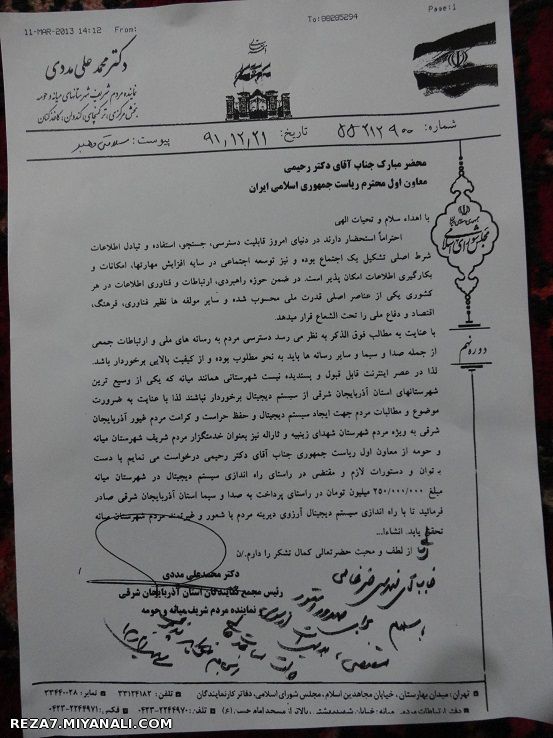 11-MAR-2013 14:12 From:
To:88285294
Page:1
دکتر محمد علی مددی
نماینده مردم شریف شهرستانهای میانه و حومه
بخش مرکزی، ترکمنچای، کندوان، کاغذکنان
شماره: ۵۵۲۱۲۹۰۰
تاریخ: ۹۱,۱۲,۲۱
پیوست:
محضر مبارک جناب آقای دکتر رحیمی
معاون اول محترم ریاست جمهوری اسلامی ایران
با اهداء سلام و تحیات الهی
احتراماً استحضار دارند در دنیای امروز قابلیت دسترسی، جستجو، استفاده و تبادل اطلاعات
شرط اصلی تشکیل یک اجتماع بوده و نیز توسعه اجتماعی در سایه افزایش مهارتها، امکانات و
بکارگیری اطلاعات امکان پذیر است. در ضمن حوزه راهبردی، ارتباطات و فناوری اطلاعات در هر
کشوری یکی از عناصر اصلی قدرت ملی محسوب شده و سایر مولفه ها نظیر فناوری، فرهنگ،
اقتصاد و دفاع ملی را تحت الشعاع قرار میدهد.
با عنایت به مطالب فوق الذکر به نظر می رسد دسترسی مردم به رسانه های ملی و ارتباطات جمعی
از جمله صدا و سیما و سایر رسانه ها باید به نحو مطلوب بوده و از کیفیت بالایی برخوردار باشد.
لذا در عصر اینترنت قابل قبول و پسندیده نیست شهرستانی همانند میانه که یکی از وسیع ترین
شهرستانهای استان آذربایجان شرقی از سیستم دیجیتال برخوردار نباشند لذا با عنایت به ضرورت
موضوع و مطالبات مردم جهت ایجاد سیستم دیجیتال و حفظ حراست و کرامت مردم غیور آذربایجان
شرقی به ویژه مردم شهرستان شهدای زینبیه و ثاراله نیز بعنوان خدمتگزار مردم شریف شهرستان میانه
و حومه از معاون اول ریاست جمهوری جناب آقای دکتر رحیمی درخواست می نمایم با دست
توان و دستورات لازم و مقتضی در راستای راه اندازی سیستم دیجیتال در شهرستان میانه
مبلغ ۲۵۰/۰۰۰/۰۰۰ میلیون تومان در راستای پرداخت به صدا و سیما استان آذربایجان شرقی صادر
فرمائید تا با راه اندازی سیستم دیجیتال آرزوی دیرینه مردم با شعور و غیرتمند مردم شهرستان میانه
تحقق یابد. انشاءا...
از لطف و محبت حضرتعالی کمال تشکر را دارم./ن
دکتر محمدعلی مددی
رئیس مجمع نمایندگان استان آذربایجان شرقی
نماینده مردم شریف میانه و حومه
مجلس شورای اسلامی
دوره نهم
تهران: میدان بهارستان، خیابان مجاهدین اسلام، مجلس شورای اسلامی، دفاتر کارنمایندگان تلفن: ۳۳۱۲۴۱۸۲ نمابر: ۳۳۴۴۰۰۲۸
دفتر ارتباطات مردمی میانه: خیابان شهید بهشتی، بالاتر از مسجد امام حسن (ع) تلفن: ۲۲۴۴۹۷۰-۰۴۲۳ فکس: ۲۲۴۴۹۷۱-۰۴۲۳
REZA7.MIYANALI.COM